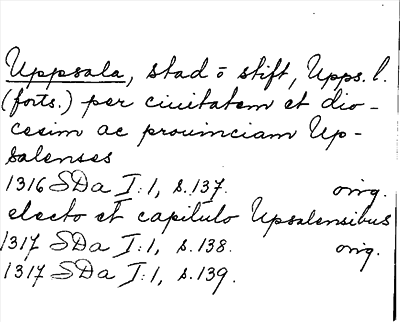 Uppsala, stad o stift, Upps. l.
(forts.) per ciuitatem et dio-
cesim ac prouinciam Up-
salenses
1316 SDa I:1, s.137. orig.
electo et capitulo Upsalensibus
1317 SDa I:1, s.138. orig.
1317 SDa I:1, s.139.